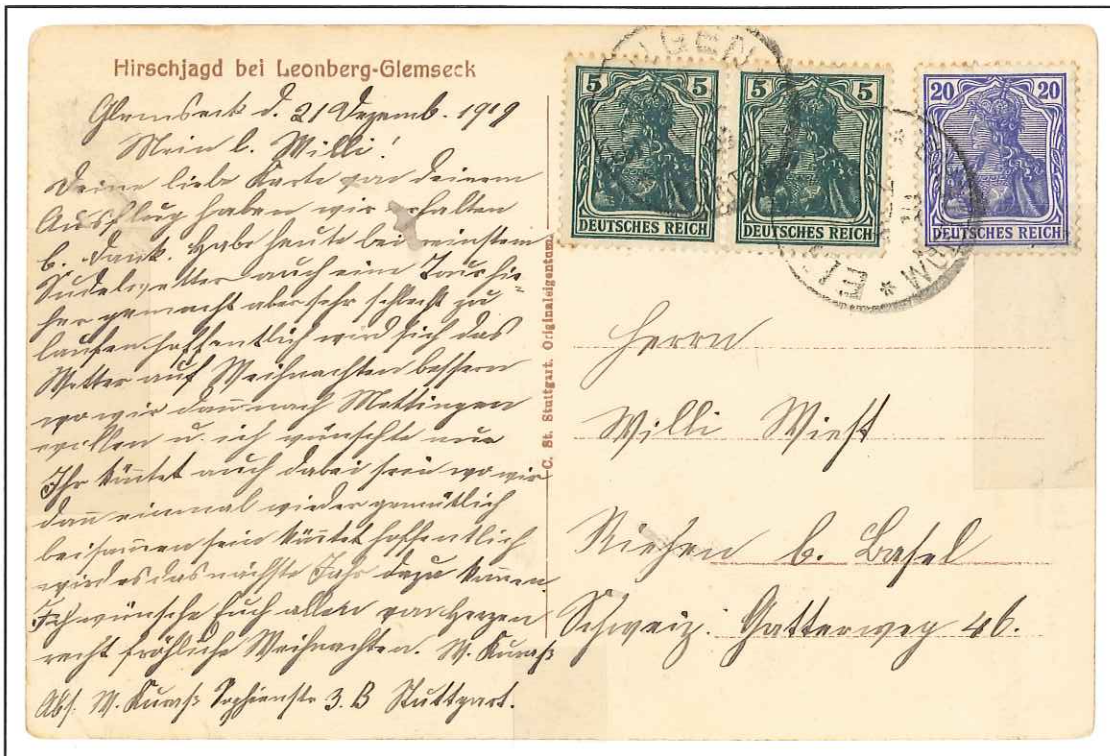 Hirschjagd bei Leonberg-Glemseck
Glemseck d. 21 Dezemb. 1919
Mein l. Willi!
Deine liebe Karte von Deinem
Ausflug haben wir erhalten
b. Dank. Habe heute bei reinstem
Sudelwetter auch eine Tour hie-
her gemacht aber sehr schlecht zu
laufen hoffentlich wird sich das
Wetter auf Weihnachten bessern
wo wir dan̄ nach Mettingen
wollen u. ich wünschte nur
Ihr kön̄tet auch dabei sein wo wir
dan̄ einmal wieder gemütlich
beisam̄en sein kön̄tet hoffentlich
wird es das nächste Jahr dazu kom̄en
Ich wünsche Euch allen von Herzen
recht fröhliche Weihnachten. W.
Abs. W. Sophienstr 3. B Stuttgart.
C. St. Stuttgart. Originaleigentum
5 5
DEUTSCHES REICH
5 5
DEUTSCHES REICH
20 20
DEUTSCHES REICH
Herrn
Willi Wiest
Riehen b. Basel
Schweiz. Gatterweg 46.